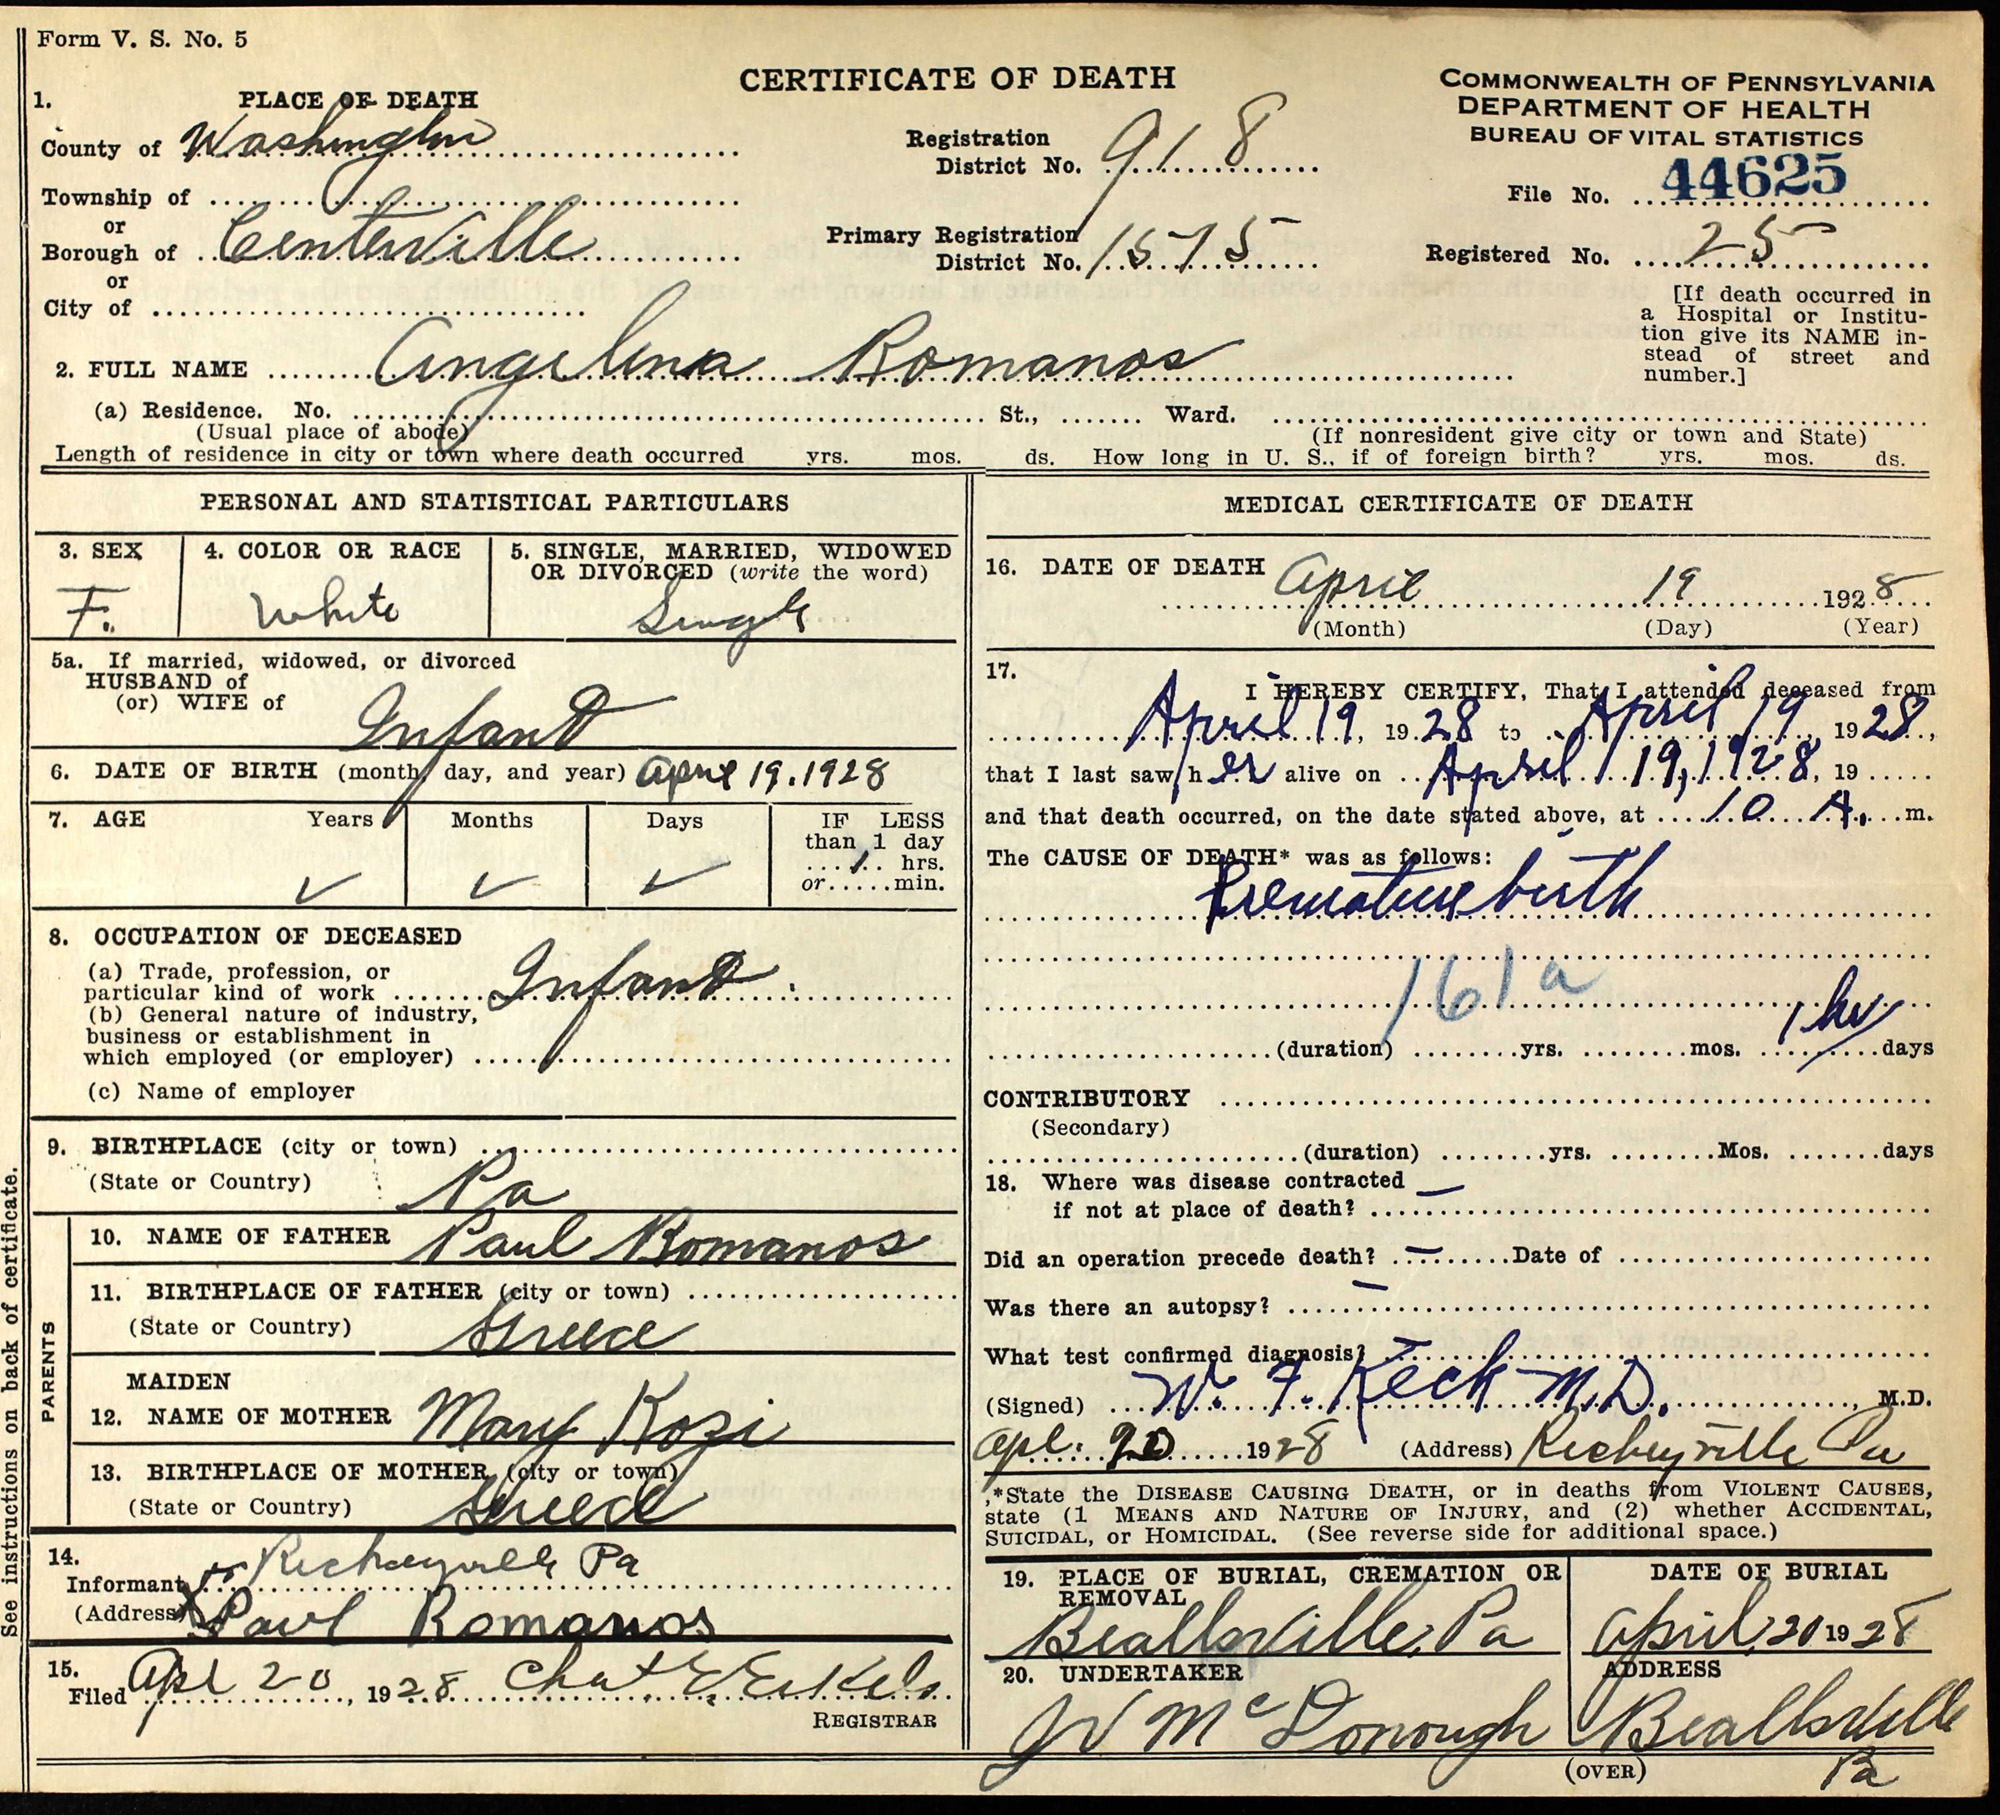 Form V. S. No. 5
CERTIFICATE OF DEATH
COMMONWEALTH OF PENNSYLVANIA
DEPARTMENT OF HEALTH
BUREAU OF VITAL STATISTICS
1. PLACE OF DEATH
County of Washington
Township of
or
Borough of Centerville
or
City of
Registration
District No. 918
Primary Registration
District No. 1575
File No. 44625
Registered No. 25
[If death occurred in
a Hospital or Institu-
tion give its NAME in-
stead of street and
number.]
2. FULL NAME Angelina Romanos
(a) Residence. No. St., Ward.
(Usual place of abode)
(If nonresident give city or town and State)
Length of residence in city or town where death occurred yrs. mos. ds. How long in U. S., if of foreign birth? yrs. mos. ds.
PERSONAL AND STATISTICAL PARTICULARS
3. SEX
F.
4. COLOR OR RACE
White
5. SINGLE, MARRIED, WIDOWED
OR DIVORCED (write the word)
Single
5a. If married, widowed, or divorced
HUSBAND of
(or) WIFE of
Infant
6. DATE OF BIRTH (month, day, and year) April 19. 1928
7. AGE Years Months Days
IF LESS
than 1 day
1 hrs.
or.....min.
8. OCCUPATION OF DECEASED
(a) Trade, profession, or
particular kind of work Infant
(b) General nature of industry,
business or establishment in
which employed (or employer)
(c) Name of employer
9. BIRTHPLACE (city or town)
(State or Country) Pa
PARENTS
10. NAME OF FATHER Paul Romanos
11. BIRTHPLACE OF FATHER (city or town)
(State or Country) Greece
MAIDEN
12. NAME OF MOTHER Mary Kozi
13. BIRTHPLACE OF MOTHER (city or town)
(State or Country) Greece
14. Richeyville Pa
Informant
(Address) Paul Romanos
15.
Filed Apl 20, 1928 E.
REGISTRAR
See instructions on back of certificate.
MEDICAL CERTIFICATE OF DEATH
16. DATE OF DEATH
April 19 1928
(Month) (Day) (Year)
17.
I HEREBY CERTIFY, That I attended deceased from
April 19, 1928 to April 19, 1928,
that I last saw her alive on April 19, 1928, 19
and that death occurred, on the date stated above, at 10 A. m.
The CAUSE OF DEATH* was as follows:
Premature birth
161a
1 hr
(duration) yrs. mos. days
CONTRIBUTORY
(Secondary)
(duration) yrs. Mos. days
18. Where was disease contracted —
if not at place of death?
Did an operation precede death? — Date of
Was there an autopsy? —
What test confirmed diagnosis?
(Signed) W. F. Keck M.D., M.D.
Apl. 20 1928 (Address) Richeyville Pa
*State the DISEASE CAUSING DEATH, or in deaths from VIOLENT CAUSES,
state (1 MEANS AND NATURE OF INJURY, and (2) whether ACCIDENTAL,
SUICIDAL, or HOMICIDAL. (See reverse side for additional space.)
19. PLACE OF BURIAL, CREMATION OR
REMOVAL
Beallsville, Pa
DATE OF BURIAL
April 20 1928
20. UNDERTAKER
W McDonough
ADDRESS
Beallsville
Pa
(OVER)